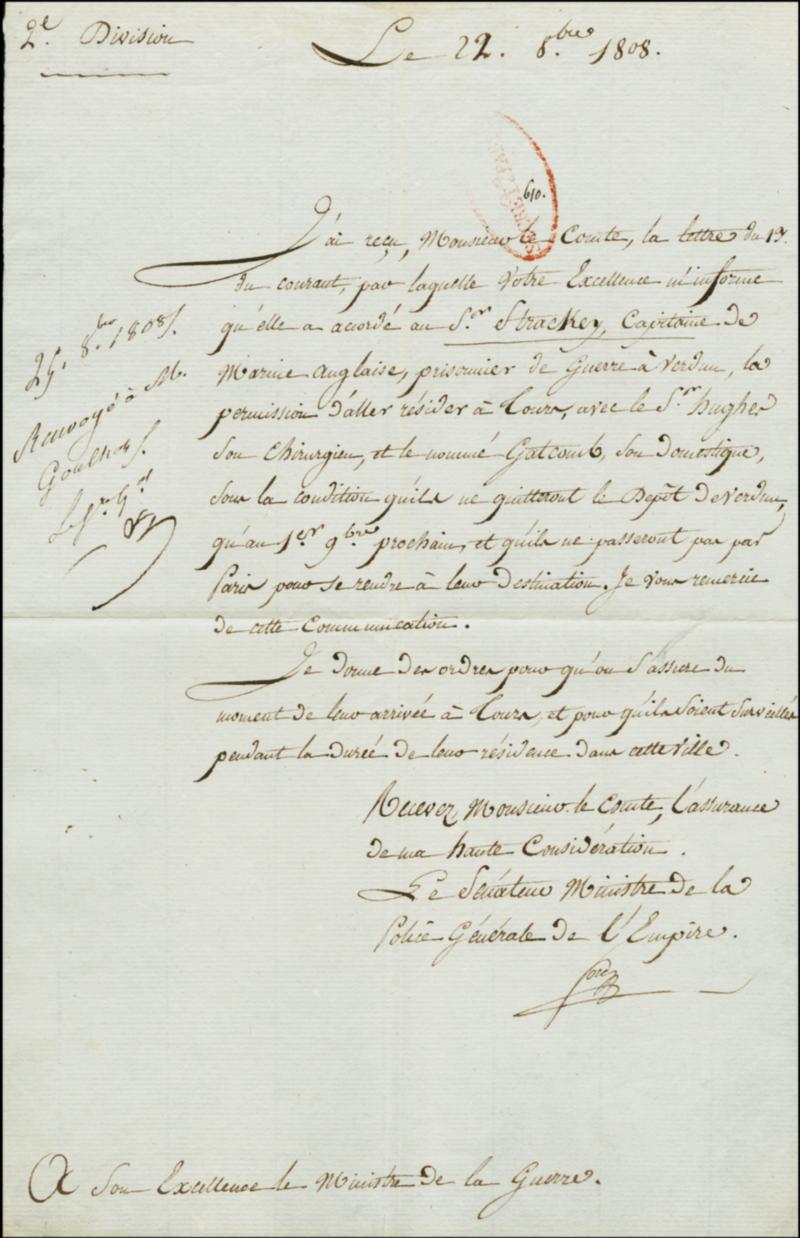 2e. Division
Le 22. 8.bre 1808.
610.
J'ai reçu, Monsieur le Comte, la lettre du 17.
du courant, par laquelle Votre Excellence m'informe
qu'elle a accordé au S.er Strackey, Capitaine de
Marine anglaise, prisonnier de Guerre à Verdun, la
permission d'aller résider à Tours, avec le S.r hughes
Son Chirurgien, et le nommé Gatcomb, Son Domestique,
Sous la condition qu'ils ne quitteront le Dépôt de Verdun,
qu'au 1.er 9.bre prochain, et qu'ils ne passeront pas par
Paris pour se rendre à leur Destination. Je vous remercie
de cette Communication.
Je donne des ordres pour qu'on s'assure du
moment de leur arrivée à Tours, et pour qu'ils Soient Surveillés
pendant la durée de leur résidence dans cette ville.
Recevez, Monsieur le Comte, l'assurance
de ma haute Considération.
Le Sénateur Ministre de la
Police Générale de l'Empire.
A Son Excellence le Ministre de la Guerre.
25. 8.bre 1808.
Renvoyé à M.
Goulhot.
Le S.re G.al